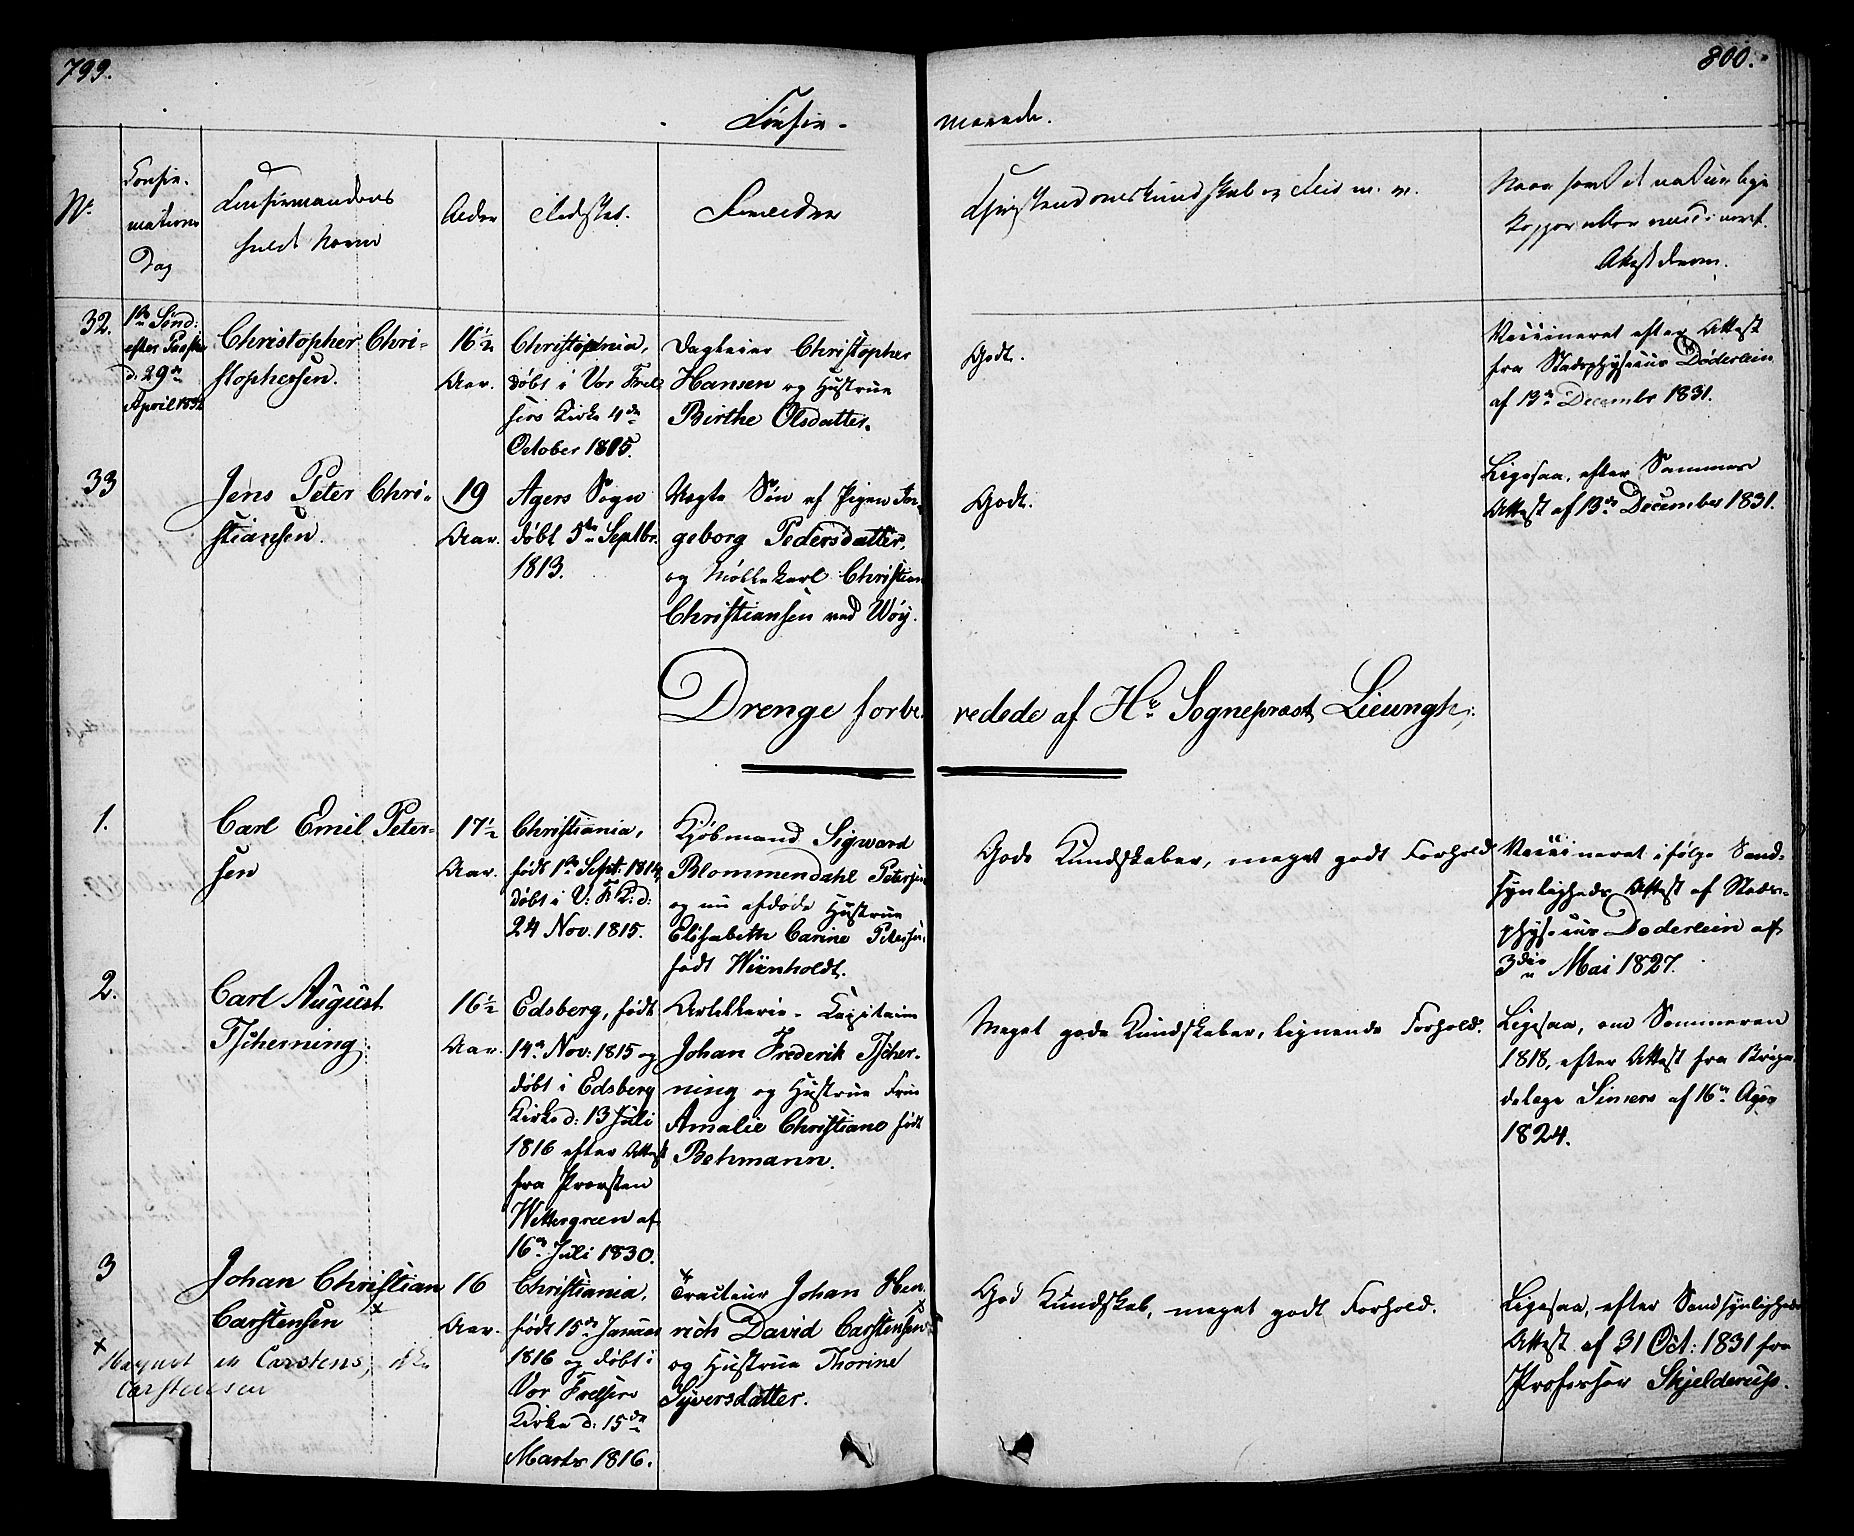 799.
800.
Confir-
merede.
No.
Confir-
mations
Dag
Confirmandens
fulde Navn
Alder
Fødsted.
Forældre
Christendomskundskab og Flid m. v.
Naar havt de naturlige
Kopper eller vaccineret.
Attest derom.
32.
1ste Sønd:
efter Paaske
d. 29de
April 1832
Christopher Chri-
stophersen.
16½
Aar.
Christiania,
døbt i Vor Frel-
sers Kirke 4de
October 1815.
Dagleier Christopher
Hansen og Hustrue
Birthe Olsdatter.
Godt.
Vaccineret efter Attest
fra Stadsphysicus Døderlein
af 13de December 1831.
33
Jens Peter Chri-
stiansen.
19
Aar.
Agers Sogn
døbt 5te Septbr.
1813.
Uægte Søn af Pigen In-
geborg Pedersdatter,
og Møllekarl Christian
Christiansen ved Wøy.
Godt.
Ligesaa, efter Sammes
Attest af 13de December 1831.
Drenge forbe-
redede af Hr. Sognepræst Lieungh:
1.
Carl Emil Peter-
sen
17½
Aar.
Christiania,
født 1ste Sept: 1814,
døbt i V: F. K: d:
24 Nov. 1815.
Kjøbmand Sigward
Blommendahl Petersen
og nu afdøde Hustrue
Elisabeth Carine Petersen,
født Wienholdt.
Gode Kundskaber, meget godt Forhold
Vaccineret ifølge Sand-
synligheds Attest af Stads-
physicus Døderlein af
3die Mai 1827.
2.
Carl August
Tscherning
16½
Aar.
Edsberg, født
14de Nov: 1815 og
døbt i Edsberg
Kirke d: 13 Juli
1816 efter Attest
fra Provsten
Wettergreen af
16de Juli 1830.
Artillerie-Capitain
Johan Frederik Tscher-
ning og Hustrue Frue
Amalie Christiane født
Behmann.
Meget gode Kundskaber, lignende Forhold.
Ligesaa, om Sommeren
1818, efter Attest fra Briga-
delæge Simers af 16de Aug
1824.
3
Johan Christian
Carstensen
×
16
Aar.
Christiania,
født 15de Januar
1816 og døbt i
Vor Frelsers
Kirke d: 15de
Marts 1816.
×
Tracteur Johan Hen-
rich David Carstensen
og Hustrue Thorine
Syversdatter.
God Kundskab, meget godt Forhold.
Ligesaa, efter Sandsynligheds
Attest af 31 Oct: 1831 fra
Professor Skjelderup.
×
Navnet er Carstens, ikke
Carstensen